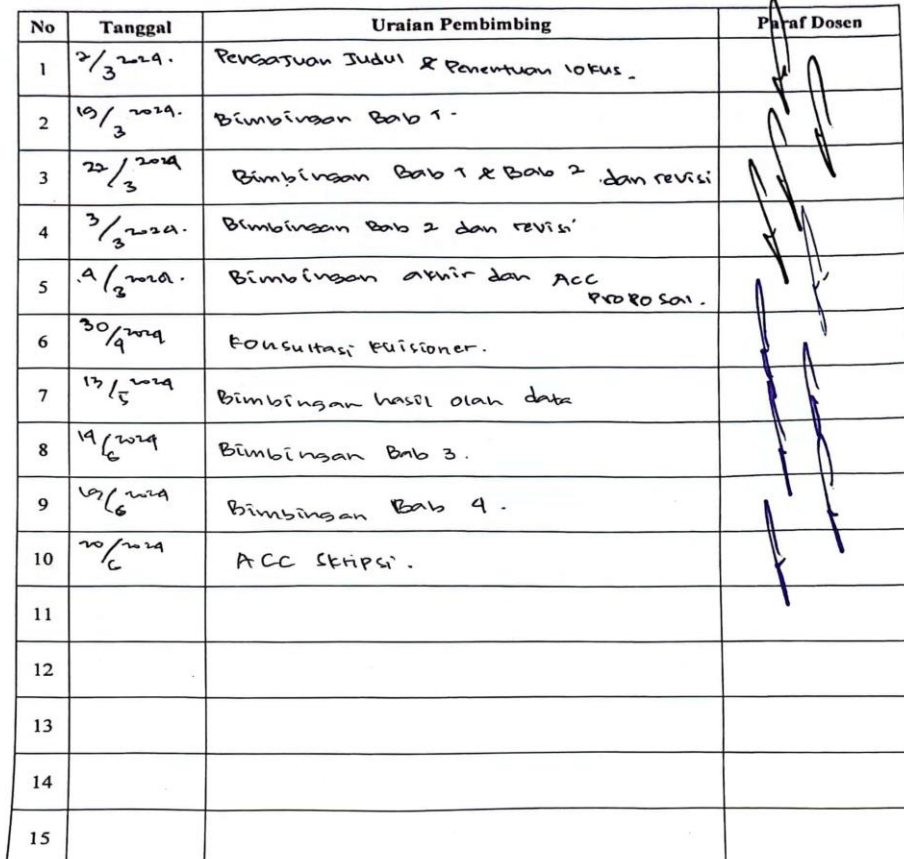 No Tanggal Uraian Pembimbing Paraf Dosen
1 2/3 2024. Pengajuan Judul & Penentuan lokus.
2 19/3 2024. Bimbingan Bab 1.
3 22/3 2024 Bimbingan Bab 1 & Bab 2 dan revisi
4 3/3 2024. Bimbingan Bab 2 dan revisi
5 4/3 2024. Bimbingan akhir dan ACC
Proposal.
6 30/4 2024 Konsultasi Kuisioner.
7 13/5 2024 Bimbingan hasil olah data
8 14/6 2024 Bimbingan Bab 3.
9 19/6 2024 Bimbingan Bab 4.
10 20/6 2024 ACC Skripsi.
11
12
13
14
15